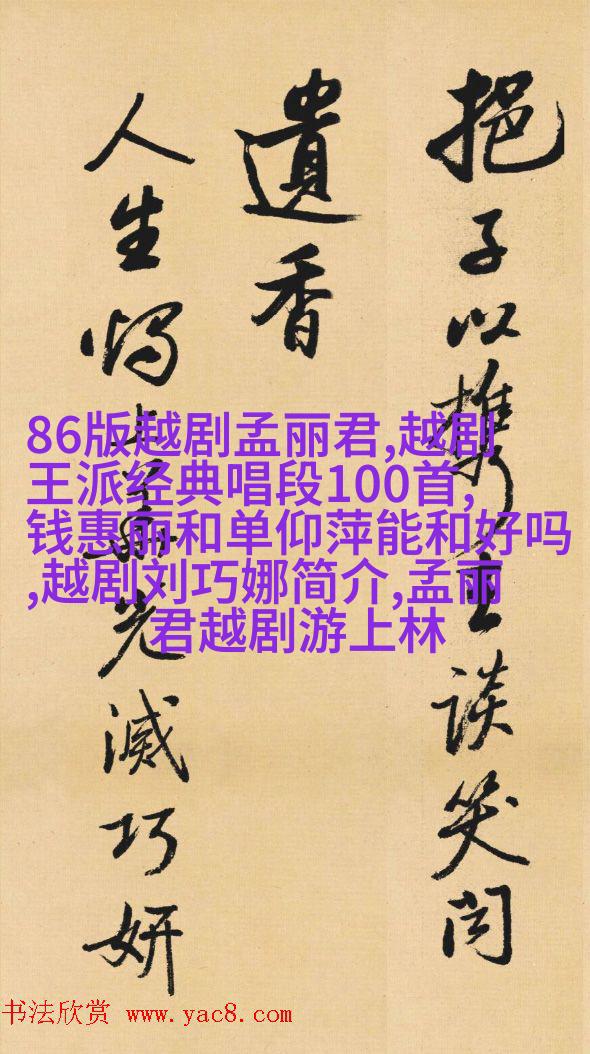 挹子以攜談笑間
遺香
人生滅巧妍
86版越剧孟丽君,越剧
王派经典唱段100首,
钱惠丽和单仰萍能和好吗
,越剧刘巧娜简介,孟丽
君越剧游上林
书法欣赏 www.yac8.com